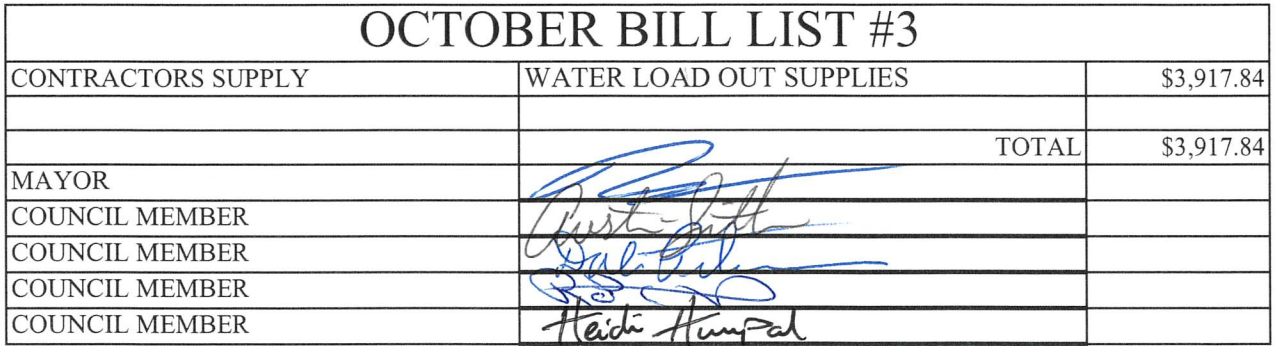 OCTOBER BILL LIST #3
CONTRACTORS SUPPLY WATER LOAD OUT SUPPLIES $3,917.84
TOTAL $3,917.84
MAYOR
COUNCIL MEMBER
COUNCIL MEMBER
COUNCIL MEMBER
COUNCIL MEMBER Heidi Humpal